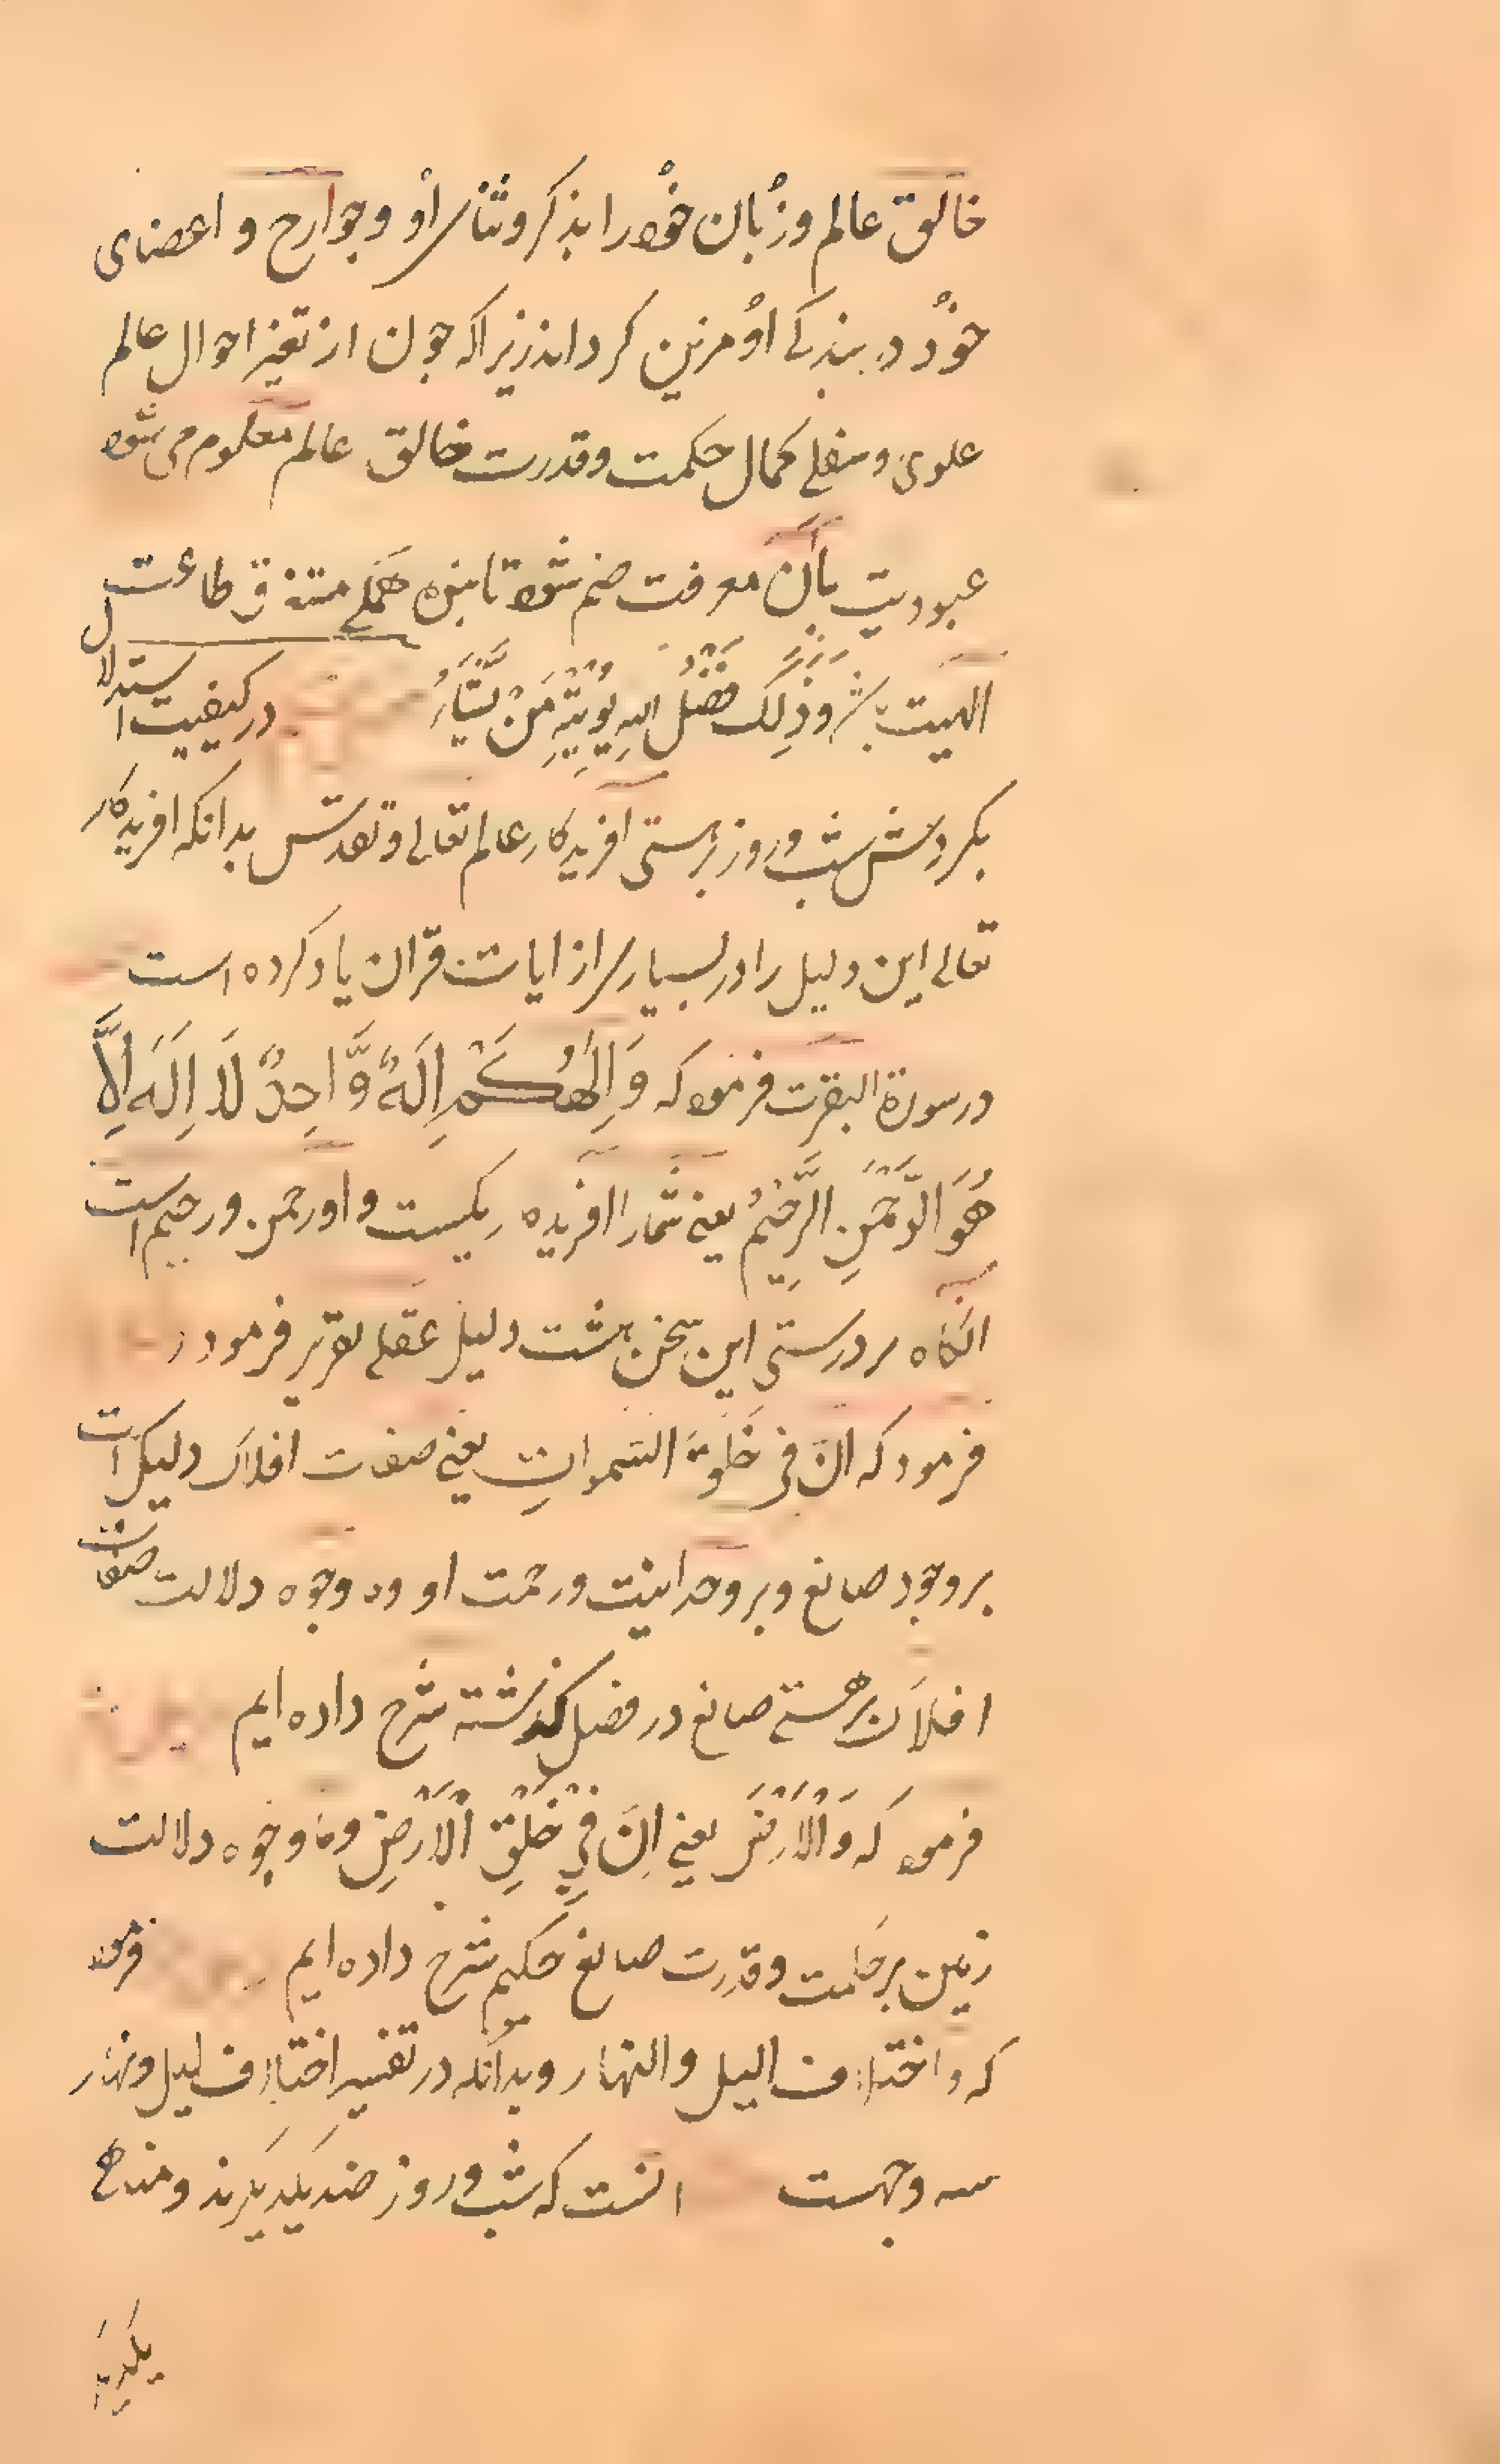 خالق عالم وزبان خود را بذکر وثنای او وجوارح و اعضای
خود در بندکی او مزین کرداند زیرا که جون از تغیر احوال عالم
علوی وسفلی کمال حکمت وقدرت خالق عالم معلوم می شود
عبودیت بآن معرفت ضم شود تا بنده همکی مستغرق طاعت
الهیت باشد وَذٰلِكَ فَضْلُ اللهِ يُؤْتِيْهِ مَنْ يَّشَآءُ در کیفیت استدلال
بکردش شب وروز برهستی آفریدکار عالم تعالی وتقدس بدانکه افریدکار
تعالی این دلیل را در بسیاری از ایات قرآن یاد کرده است
در سورة البقرت فرمود که وَاِلٰهُكُمْ اِلٰهٌ وَّاحِدٌ لَا اِلَهَ اِلَّا
هُوَ الرَّحْمٰنِ الرَّحِيْمُ یعنی شما را افریده ریکیست و او رحمن ورحیم است
انکاه بر درستی این سخن هشت دلیل عقلی تقریر فرمود
فرمود که ان فی خَلْقِ السموات یعنی صفات افلاک دلیل است
بر وجود صانع وبر وحدانیت ورحمت او و ده وجوه دلالت صفات
افلاک برهستی صانع در فصل کذشته شرح داده ایم
فرمود که وَالْاَرْضِ یعنی اِنَّ فِيْ خَلْقِ الْاَرْضِ و ده وجوه دلالت
زمین برحکمت وقدرت صانع حکیم شرح داده ایم فرمود
که واختلاف الیل والنهار وبدانکه در تفسیر اختلاف لیل ونهار
سه وجهست انست که شب وروز ضد یکدیکرند ومنافی
یکدیکر